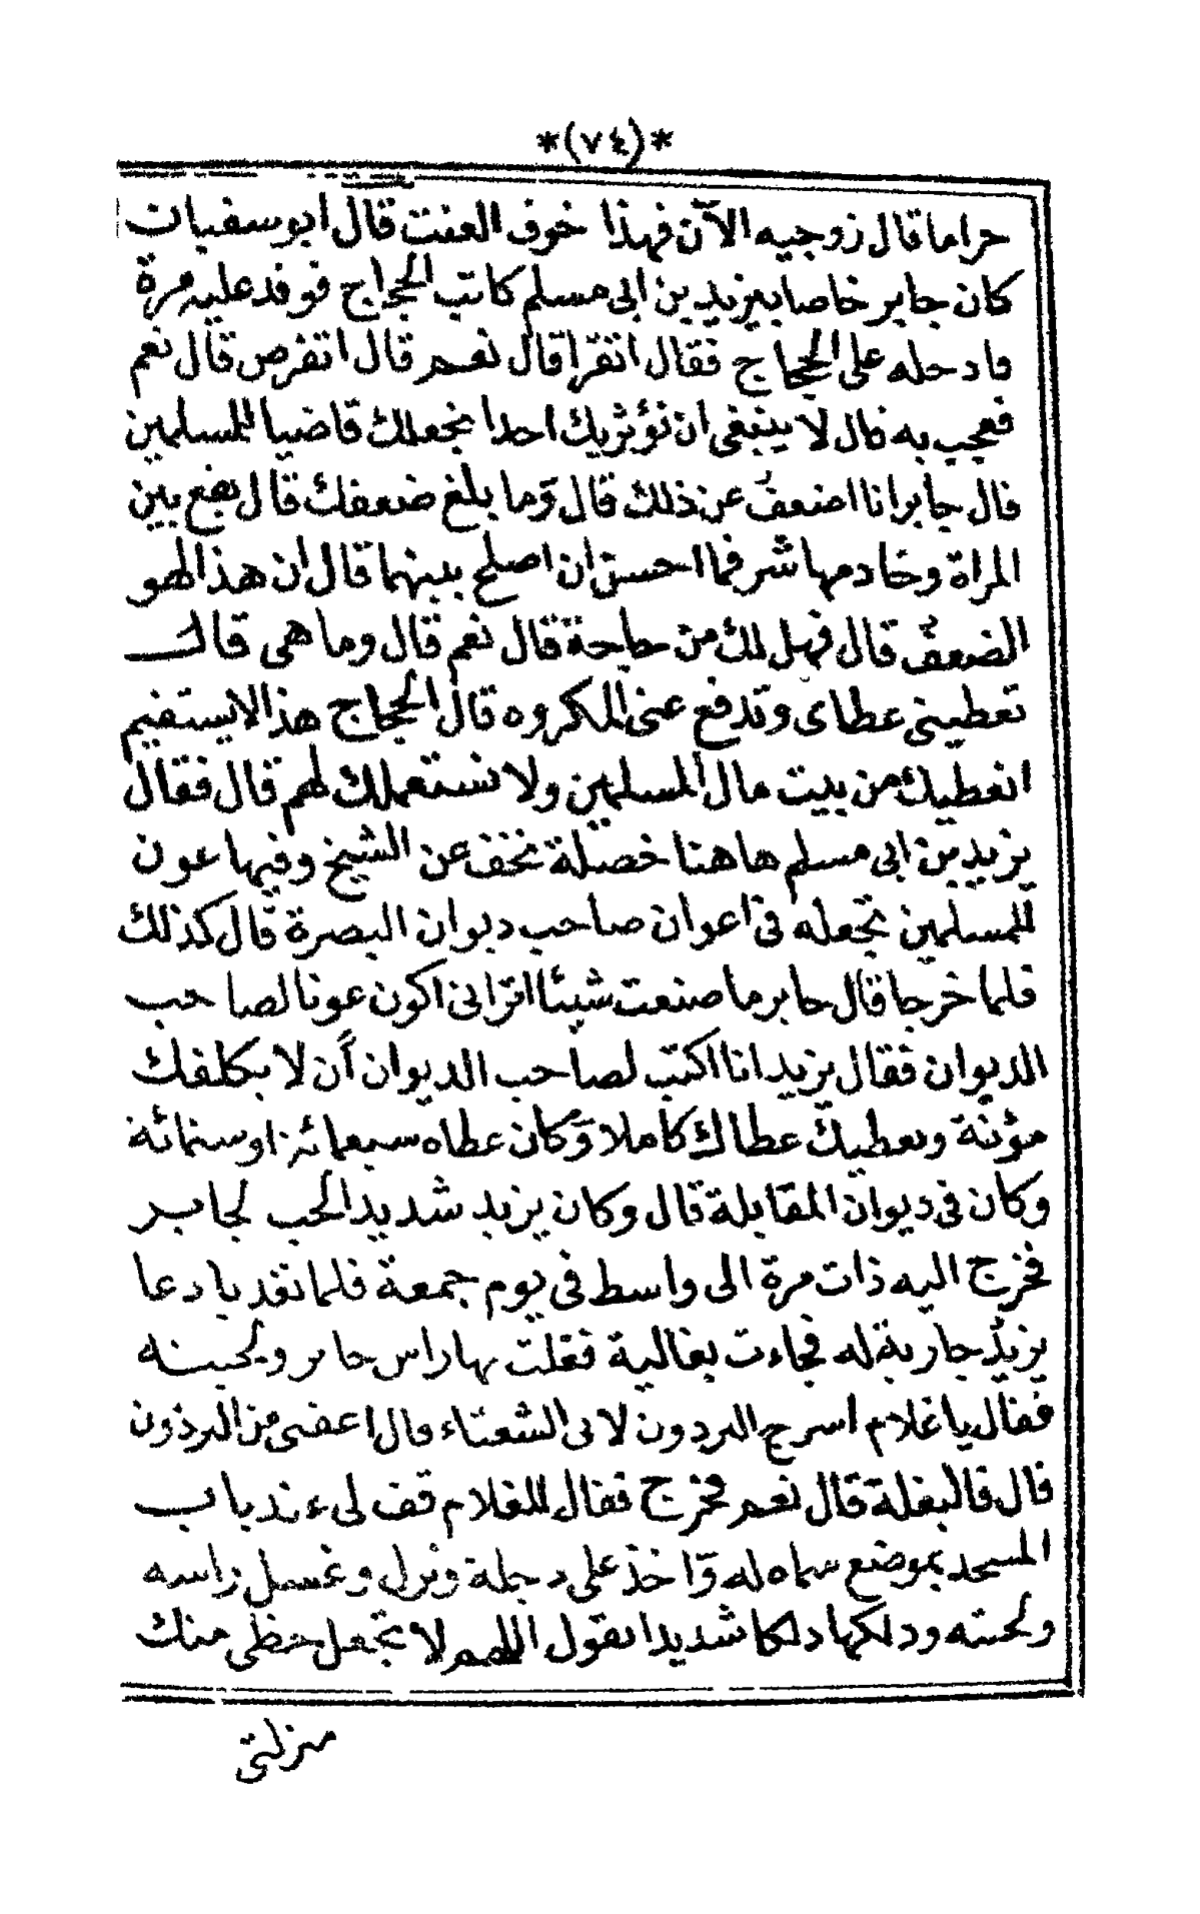 *(٧٤)*
حراما قال زوجيه الآن فهذا خوف العنت قال ابو سفيان
كان جابر خاصا بيزيد بن ابى مسلم كاتب الحجاج فوفد عليه مرة
فادخله على الحجاج فقال اتقرا قال نعم قال اتفرض قال نعم
فعجب به قال لا ينبغى ان نؤثر بك احدا نجعلك قاضيا للمسلمين
قال جابر انا اضعف عن ذلك قال وما بلغ ضعفك قال يقع بين
المراة وخادمها شر فما احسن ان اصلح بينهما قال ان هذا لهو
الضعف قال فهل لك من حاجة قال نعم قال وما هى قال
تعطينى عطاى وتدفع عنى المكروه قال الحجاج هذا لا يستقيم
انعطيك من بيت مال المسلمين ولا نستعملك لهم قال فقال
يزيد بن ابى مسلم هاهنا خصلة تخف عن الشيخ وفيها عون
للمسلمين نجعله فى اعوان صاحب ديوان البصرة قال كذلك
فلما خرجا قال جابر ما صنعت شيئا اترانى اكون عونا لصاحب
الديوان فقال يزيد انا اكتب لصاحب الديوان أن لا يكلفك
مؤنة ويعطيك عطاك كاملا وكان عطاه سبعمائة او ستمائة
وكان فى ديوان المقابلة قال وكان يزيد شديد الحب لجابر
فخرج اليه ذات مرة الى واسط فى يوم جمعة فلما تغديا دعا
يزيد جارية له فجاءت بغالية فغلت بها راس جابر ولحيته
فقال يا غلام اسرج البردون لابى الشعثاء قال اعفنى من البرذون
قال فالبغلة قال نعم فخرج فقال للغلام قف لى عند باب
المسجد بموضع سماه له واخذ على دجلة ونزل وغسل راسه
ولحيته ودلكها دلكا شديدا يقول اللهم لا تجعل حظى منك
منزلتى